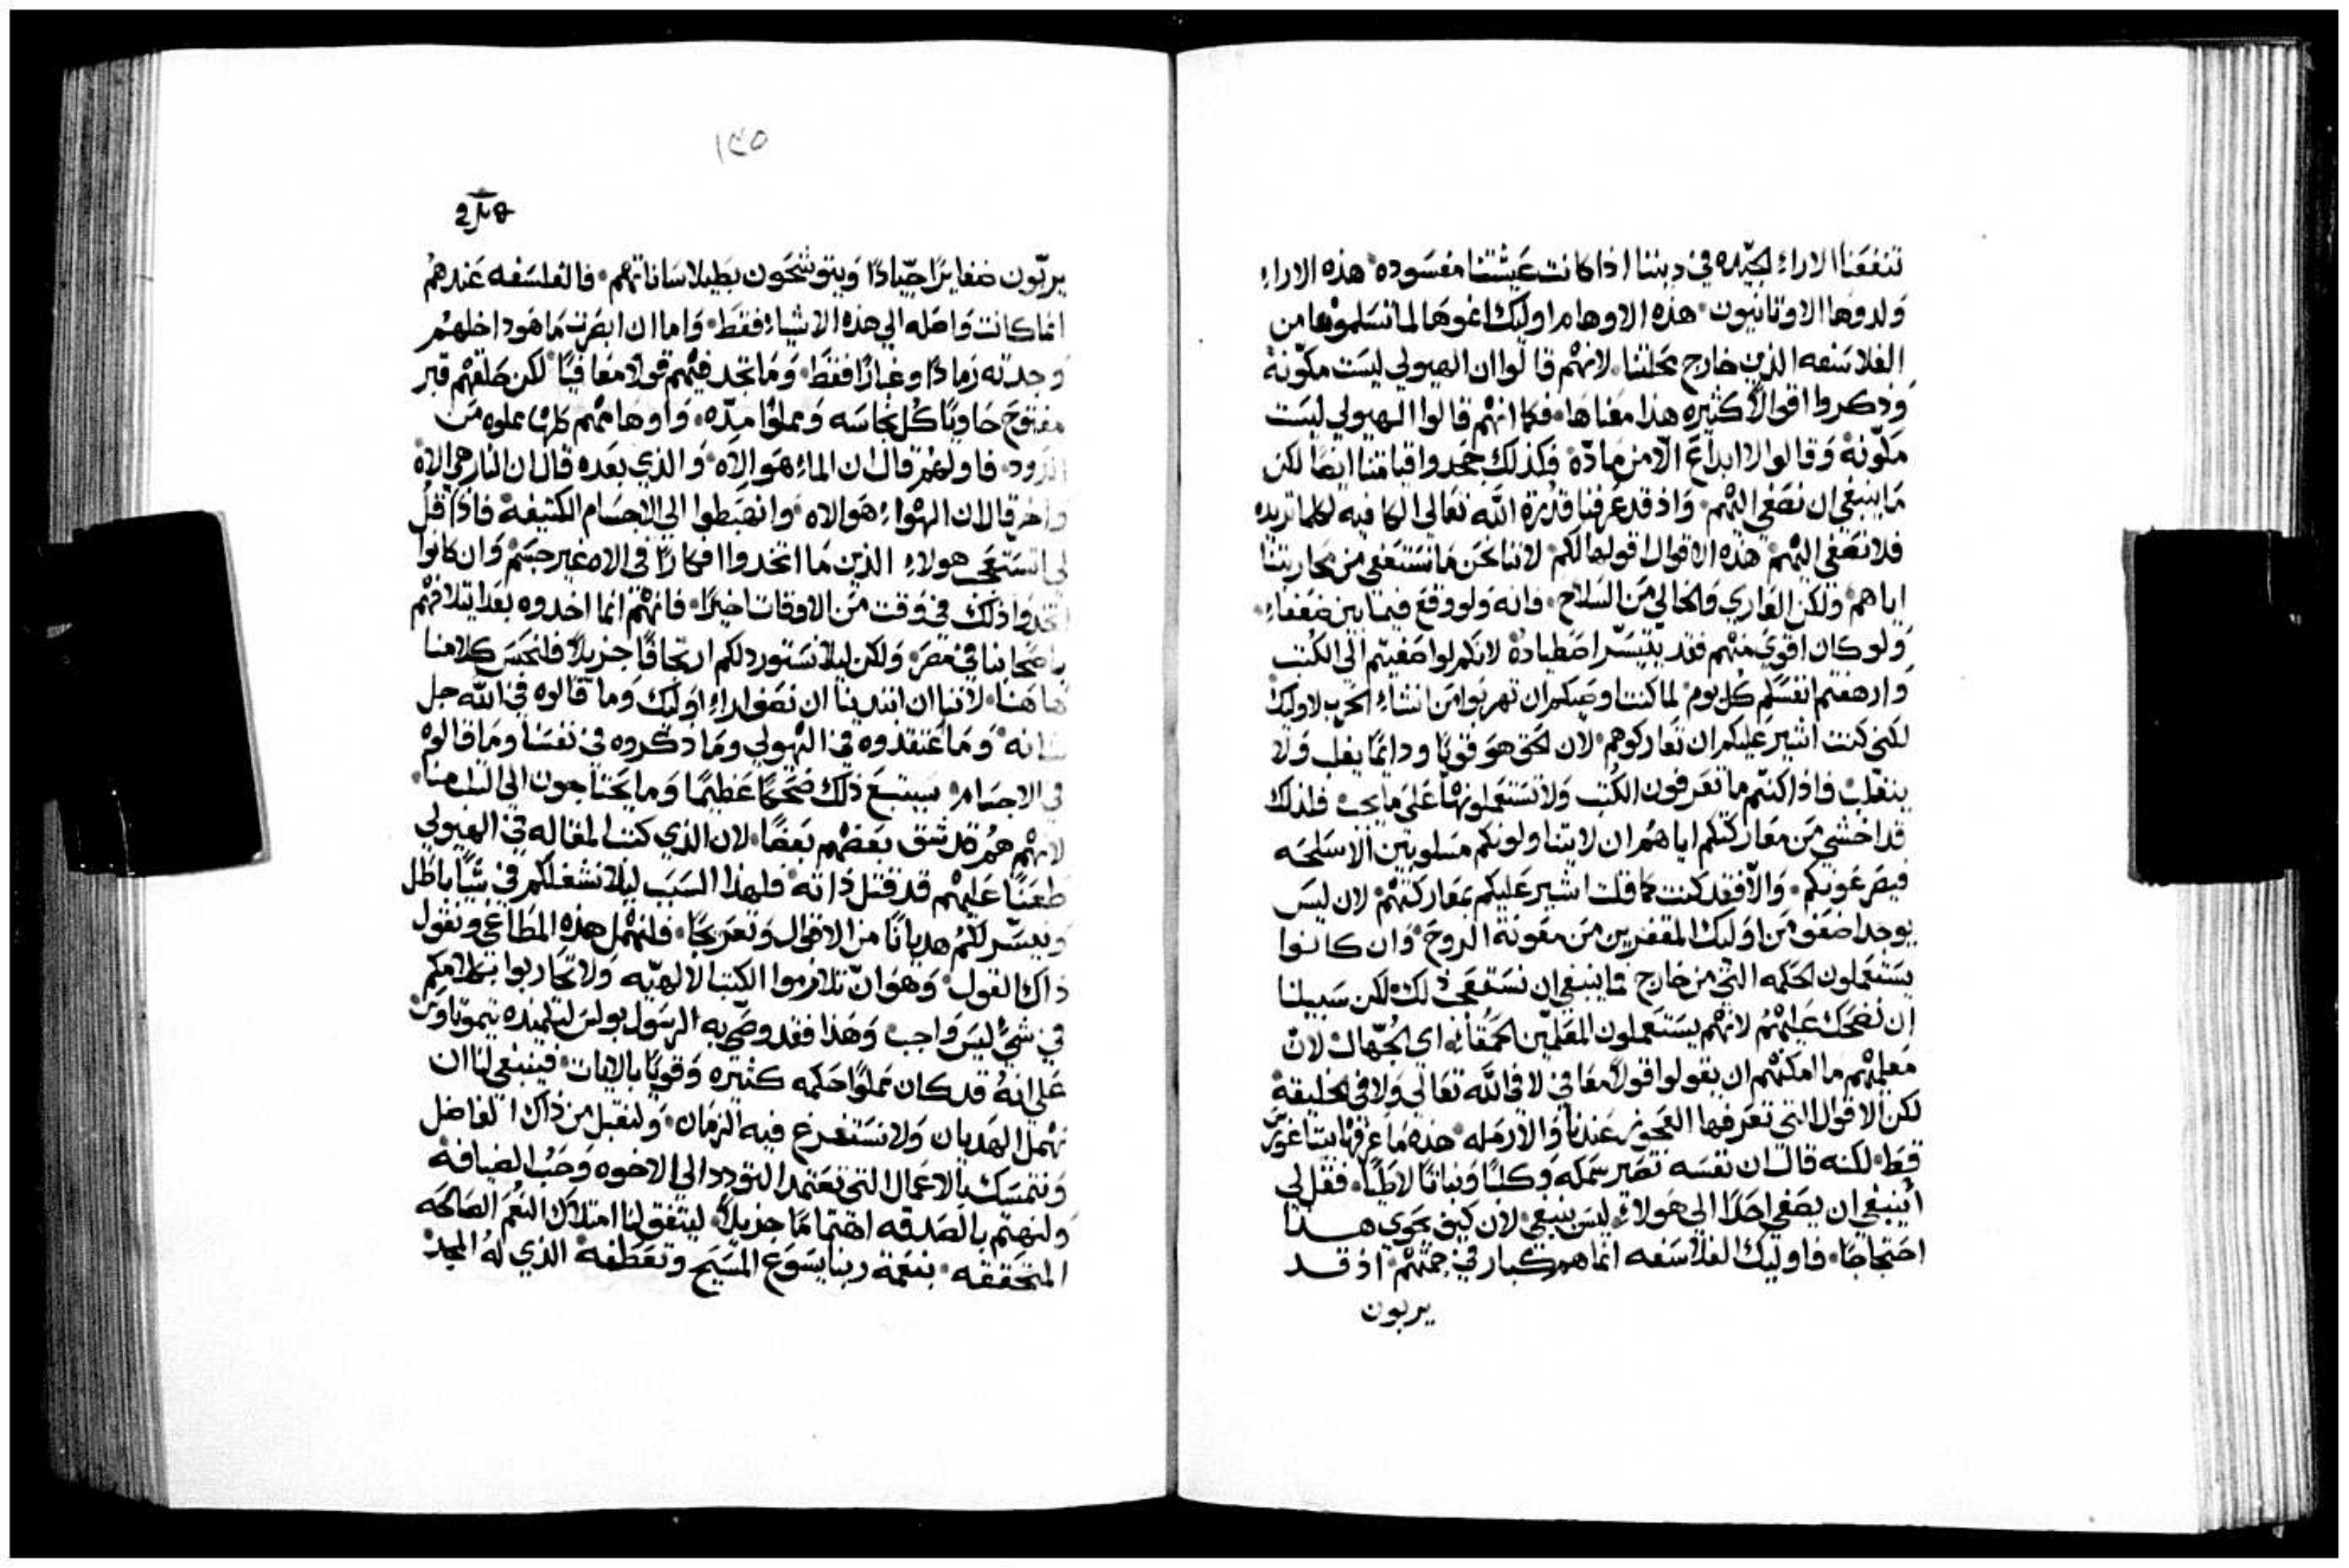 تنفعنا الاراء الجيّده في ديننا اذا كانت عَيشتنا مفسوده هذه الاراء
وَلدوها الاوثانيون هذه الاوهام اوليك اغوها لما تسَلموها من
الفلاسَفه الذين خارج محلتنا لانهم قالوا ان الهيولي ليسَت مكوّنة
وَذكروا اقوالاً كثيره هذا معَناهَا فكما انهم قالوا الهيولي ليسَت
مكوّنة وَقالوا لا ابداعَ الّا من مادّة فكذلك جحَدوا قيامَتنا ايضاً لكن
مَا ينبغي ان نصَغي اليهم وَاذ قد عَرفنا قدرة الله تعَالي الكافيه لكلما تريده
فلا نصَغي اليهم هذه الاقوال اقولها لكم لاننا نحَن مَا نسَتعَفي من محَاربتنا
اياهم وَلكن العَاري وَالخالي مَن السَلاح فانه وَلو وقعَ فيما بين ضعَفاء
وَلو كان اقويَ منهم فقد يتيسَّر اصَطياده لانكم لو اصَغيتم الي الكتب
وارهفتم انفسَكم كل يوم لما كنت اوصَيكم ان تهربوا من انشاء الحرَب لاوليك
لكني كنت اشير عَليكم ان تعَاركوهم لان الحَق هوَ قويًا ودائمًا يغلب وَلا
ينغلب فاذا كنتم ما تعَرفون الكتب وَلا تسَتعَملونها عَليَ ما يجب فلذلك
قد اخشي مَن معَاركتكم اياهُم ان لا يتناولونكم مسَلوبين الاسَلحَه
فيصَرعَونكم وَالّا فقد كنت كما قلت اشير عَليكم بمعَاركتهم لان ليسَ
يوجد اضعَف مَن اوليك المقفرين مَن معَونة الروح وَان كانوا
يسَتعَملون الحَكمه التي من خارج فما ينبغي ان نسَتقصَي ذلك لكن سَبيلنا
ان نضحَك عَليهم لانهم يسَتعَملون المعَلمّين الحمَقاء اي الجُهّال لان
معَلميهم ما امكنهم ان يقولوا قولاً معَافي لا في الله تعَالي وَلا في الخليقة
لكن الاقوال التي تعَرفها العَجوز عَندنا وَالارمله هذه مَا عَرفها بيتاغورَس
قط لكنه قال ان نفسَه تصَير سَمكه وَكلبًا وَنباتًا لاطيًا فقل لي
أينبغي ان يصَغي احَدًا الي هَولاء ليسَ ينبغي لان كيف يحَوي هـــذا
احَتجاجًا فاوليك الفلاسَفه انما هم كبار في جمّتهم اذ قـــد
يربون
١٣٥
يربّون ضفايرًا جيّادًا وَيتوشحَون بطيلاسَاناتهم فالفلسَفه عَندهُم
انما كانت وَاصَله الي هذه الاشياء فقط وَاما ان ابصَرت مَا هوَ داخلهُم
وجدته رَمادًا وغبارًا فقط وَمَا تجد فيهم قولاً معَافيًا لكن حَلقهم قبر
مفتوحَ حَاويًا كل نجاسَه وَمملوًا مِدّه وَاوهَامهم كلها مملوه مَن
الدَود فاولهُم قال ان الماء هوَ الاِلاه وَالذي بعَده قال ان النار هي الالاه
واخر قال ان الهَواء هوَ الالاه وانصَبطوا الي الاجسَام الكثيفة فاذا قل
لي انسَتعَجب هولاء الذين مَا اتخدوا افكارًا في الاه غير جسَم وَان كانوا
اتخدوا ذلك في وَقت مَن الاوقات اخيرًا فانهم انما اخدوه بعَد ايتلافهم
باصَحابنا في مصَر وَلكن ليلا نسَتورد لكم ارتجافًا جزيلاً فلنحَبس كلامنا
هَا هنا لاننا ان ابتدينا ان نصَف اراء اوليك وَما قالوه في الله جل
شانه وَمَا عَتقدوه في الهيولي ومَا ذكروه في نفسَنا ومَا قالوه
في الاجسَام سيتبعَ ذلك ضحَكًا عَظيمًا وَما يحَتاجون الي الثلب منا
لانهم هُم قد شق بعَضهم بعَضًا لان الذي كتب المقاله في الهيولي
طعَنًا عَليهم قد قتل ذاته فلهذا السَبب ليلا نشغلكم في شيًا باطل
ونيسَّر لكم هديانًا من الاقوال وَتعَريجًا فلنهمل هذه المطاغي ونقول
ذاك القول وَهوَ ان تلازموا الكتب الالهيّه وَلا تحَاربوا بكلامكم
في شيً ليسَ وَاجب وَهَذا فقد وصّي به الرسَول بولسَ لتلميذه تيموتاوسَ
عَلي انهُ قد كان مملوًا حَكمه كثيره وَقويًا بالايات فينبغي لنا ان
نهمل الهديان وَلا نسَتفرغ فيه الزمان وَلنقبل من ذاك الفاضل
وَنتمسَك بالاعَمال التي تعَتمد التودد الي الاخوه وَحَب الضيافة
وَلنهتم بالصَدقه اهتمامًا جزيلاً ليتفق لنا امتلاك النعَم الصَالحَه
المتحَققه بنعَمة ربنا يسَوع المسَيحَ وتعَطفه الذي لهُ المجد